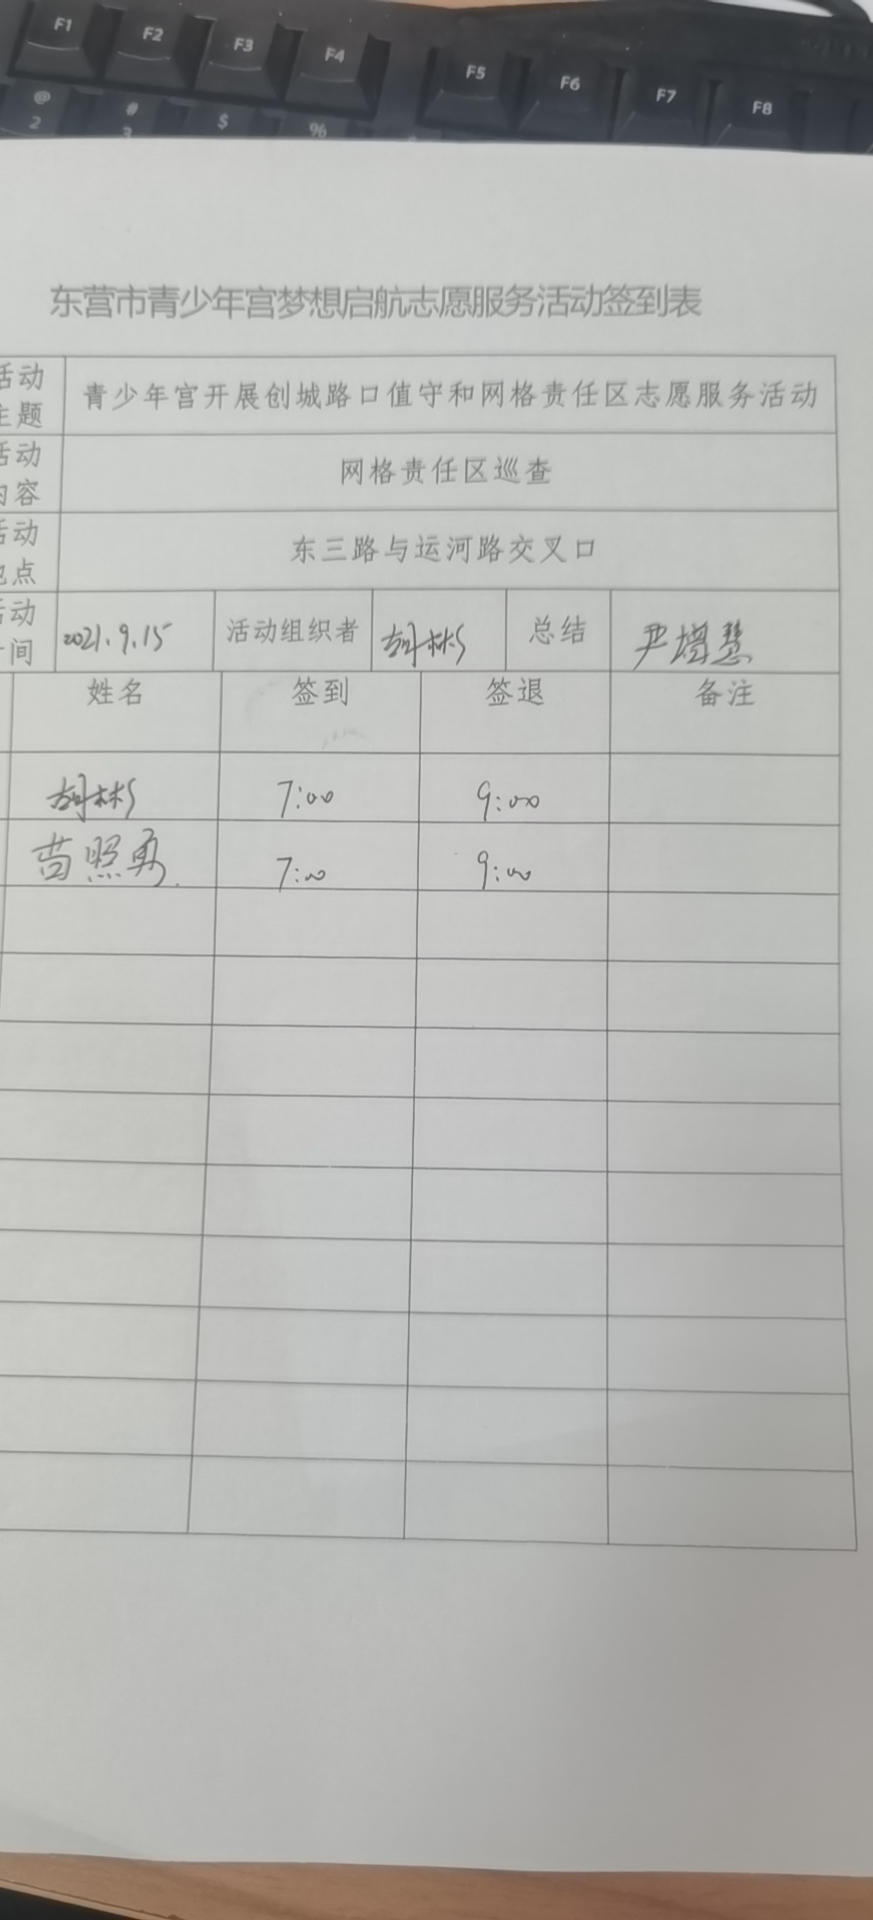 F1 F2 F3 F4 F5 F6 F7 F8
@ # $ %
2 3
东营市青少年宫梦想启航志愿服务活动签到表
活动
主题
青少年宫开展创城路口值守和网格责任区志愿服务活动
活动
内容
网格责任区巡查
活动
地点
东三路与运河路交叉口
活动
时间
2021.9.15 活动组织者 胡彬 总结 尹增慧
姓名 签到 签退 备注
胡彬 7:00 9:00
苗照勇 7:00 9:00